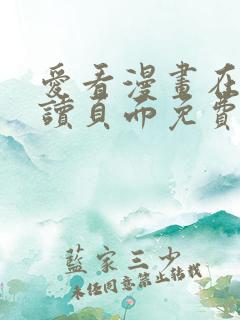 愛看漫畫在
讀頁面免費
藍家三少
未经同意禁止转载